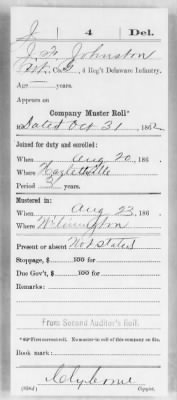 J | 4 | Del.
J. H. Johnston
Co. G, 4 Reg't Delaware Infantry.
Age years.
Appears on
Company Muster Roll*
Dated Oct 31, 1862
Joined for duty and enrolled:
When Aug 20, 186
Where Hazlettville
Period 3 years.
Mustered in:
When Aug 23, 186
Where Wilmington
Present or absent Not stated
Stoppage, $ 100 for
Due Gov't, $ 100 for
Remarks:
From Second Auditor's Roll.
Book mark:
Copyist.